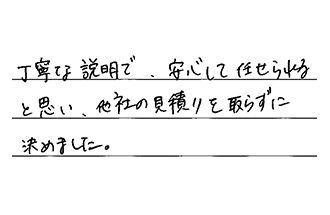 丁寧な説明で、安心して任せられる
と思い、他社の見積りを取らずに
決めました。